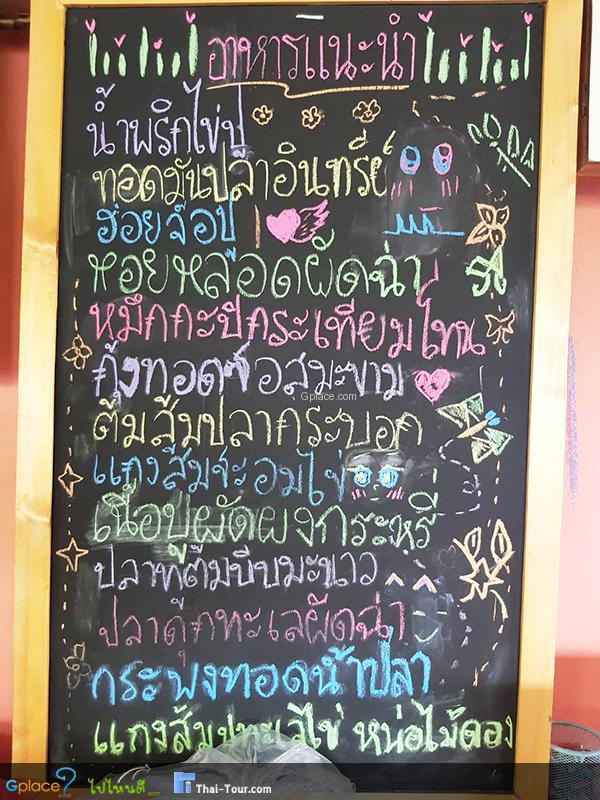 อาหารแนะนำ
น้ำพริกไข่ปู
ทอดมันปลาอินทรีย์
ฮ่อยจ๊อปู
หอยหลอดผัดฉ่า
หมึกกะปิกระเทียมโทน
กุ้งทอดซอสมะขาม
Gplace.com
ต้มส้มปลากระบอก
แกงส้มชะอมไข่
เนื้อปูผัดผงกระหรี่
ปลาทูต้มบีบมะนาว
ปลาดุกทะเลผัดฉ่า
กระพงทอดน้ำปลา
แกงส้ม หน่อไม้ดอง
Gplace?.com ไปไหนดี.com Thai-Tour.com